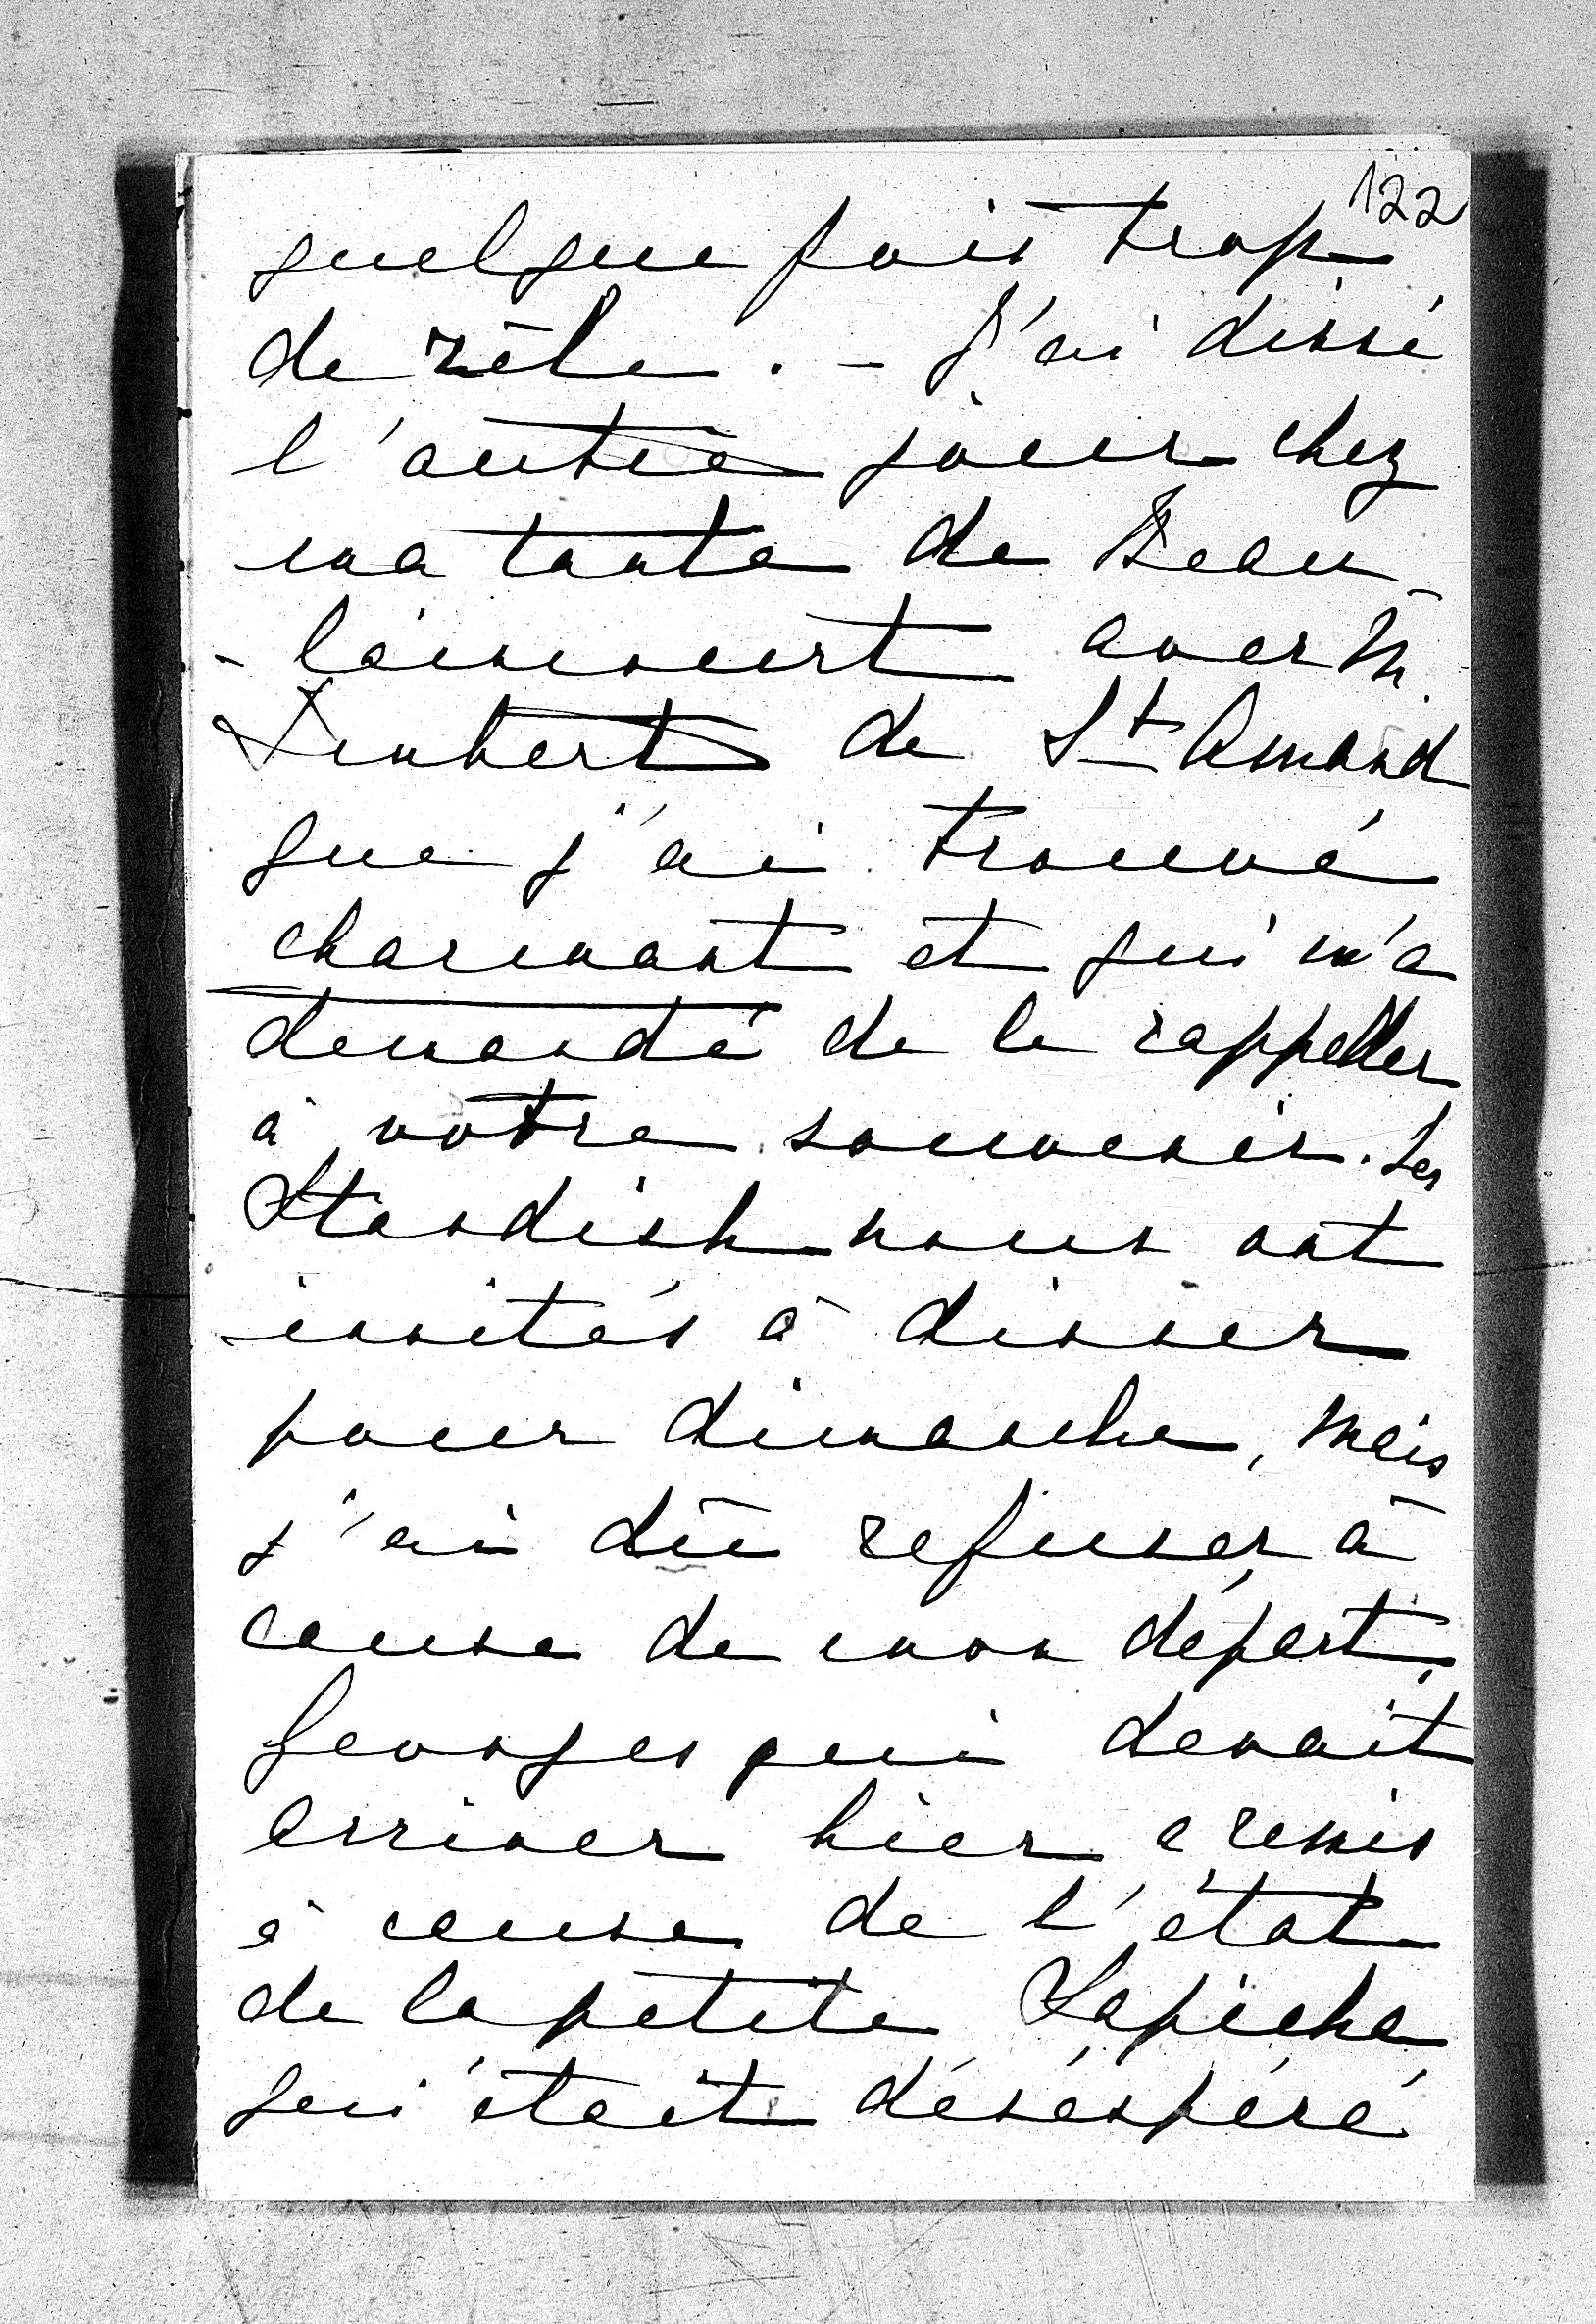 122
quelque fois trop
de zèle. - J'ai dîné
l'autre jour chez
ma tante de Beau
- laincourt avec M.
Imbert de St Amand
que j'ai trouvé
charmant et qui m'a
demandé de le rappeller
à votre souvenir. Les
Standish nous ont
invités à dinner
pour dimanche, mais
j'ai dû refuser à
cause de mon départ,
Georges qui devait
arriver hier a remis
à cause de l'état
de la petite Lapiche
qui était déséspéré